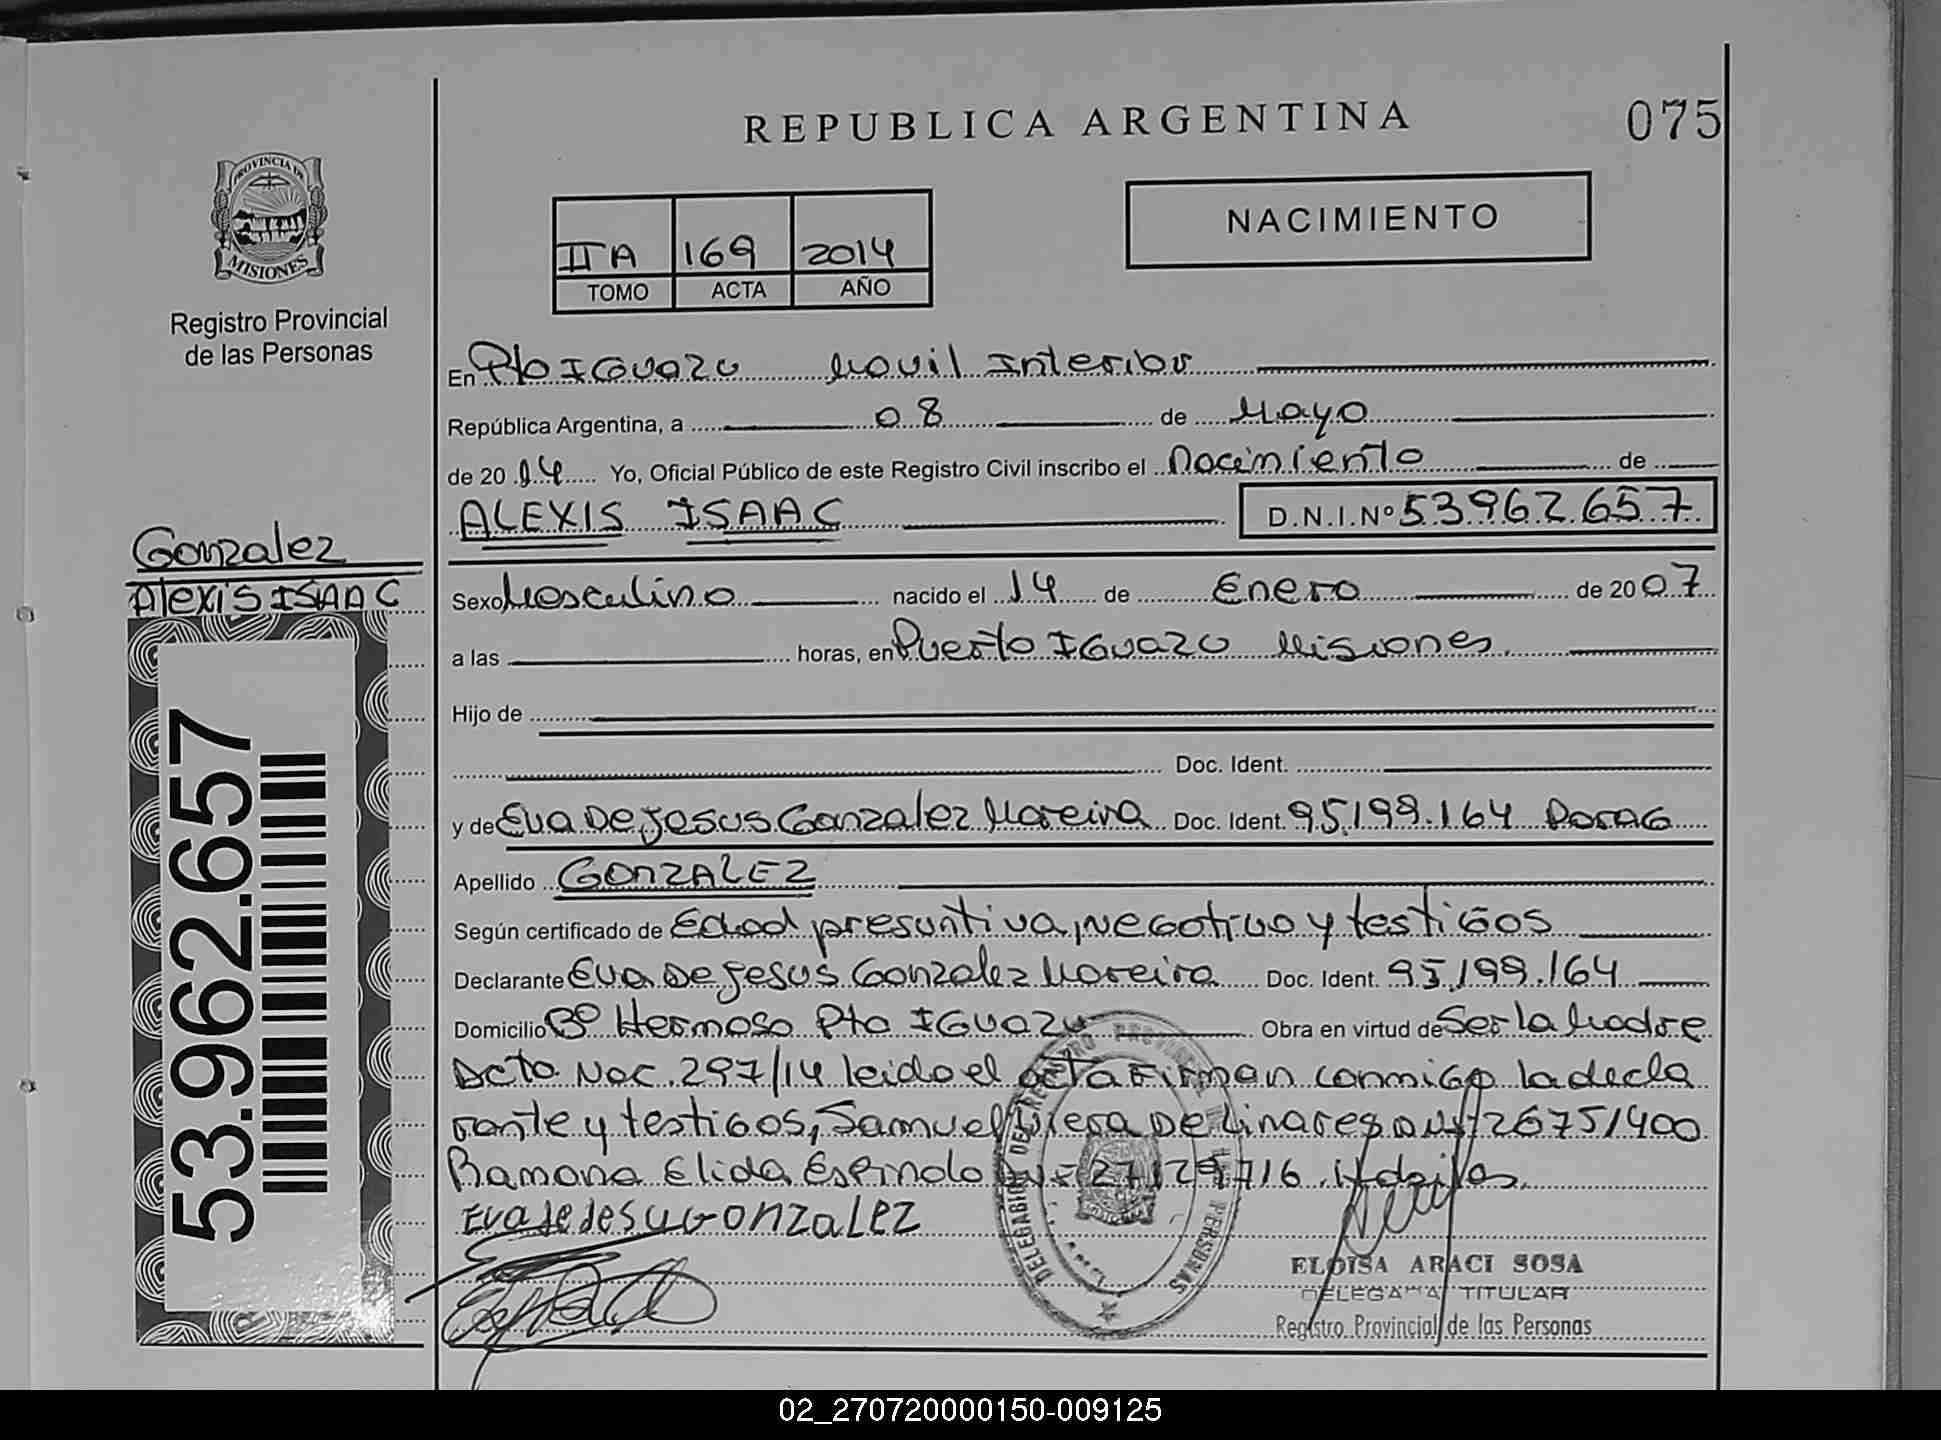 REPUBLICA ARGENTINA
075
PROVINCIA DE
MISIONES
Registro Provincial
de las Personas
NACIMIENTO
IIA 169 2014
TOMO ACTA AÑO
En Pto IGUAZU Movil Interior
República Argentina, a 08 de Mayo
de 2014 Yo, Oficial Público de este Registro Civil inscribo el Nacimiento de
ALEXIS ISAAC D.N.I.Nº 53.962.657
Gonzalez
Alexis ISAAC
53.962.657
Sexo Masculino nacido el 14 de Enero de 2007
a las horas, en Puerto IGUAZU Misiones
Hijo de
Doc. Ident.
y de Eva De Jesus Gonzalez Moreira Doc. Ident. 95.199.164
Apellido GONZALEZ
Según certificado de Edad presuntiva, Negativo y testigos
Declarante Eva De Jesus Gonzalez Moreira Doc. Ident. 95.199.164
Domicilio Bº Hermoso Pto IGUAZU Obra en virtud de Ser la Madre
Dcto Nac. 297/14 leida el acta Firman conmigo la decla
rante y testigos, Samuel De Linares 26751400
Ramona Elida Espindola
Eva de Jesu Gonzalez
DELEGACION DEL REGISTRO PROVINCIAL DE LAS PERSONAS
ELOISA ARACI SOSA
DELEGADA TITULAR
Registro Provincial de las Personas
02_270720000150-009125